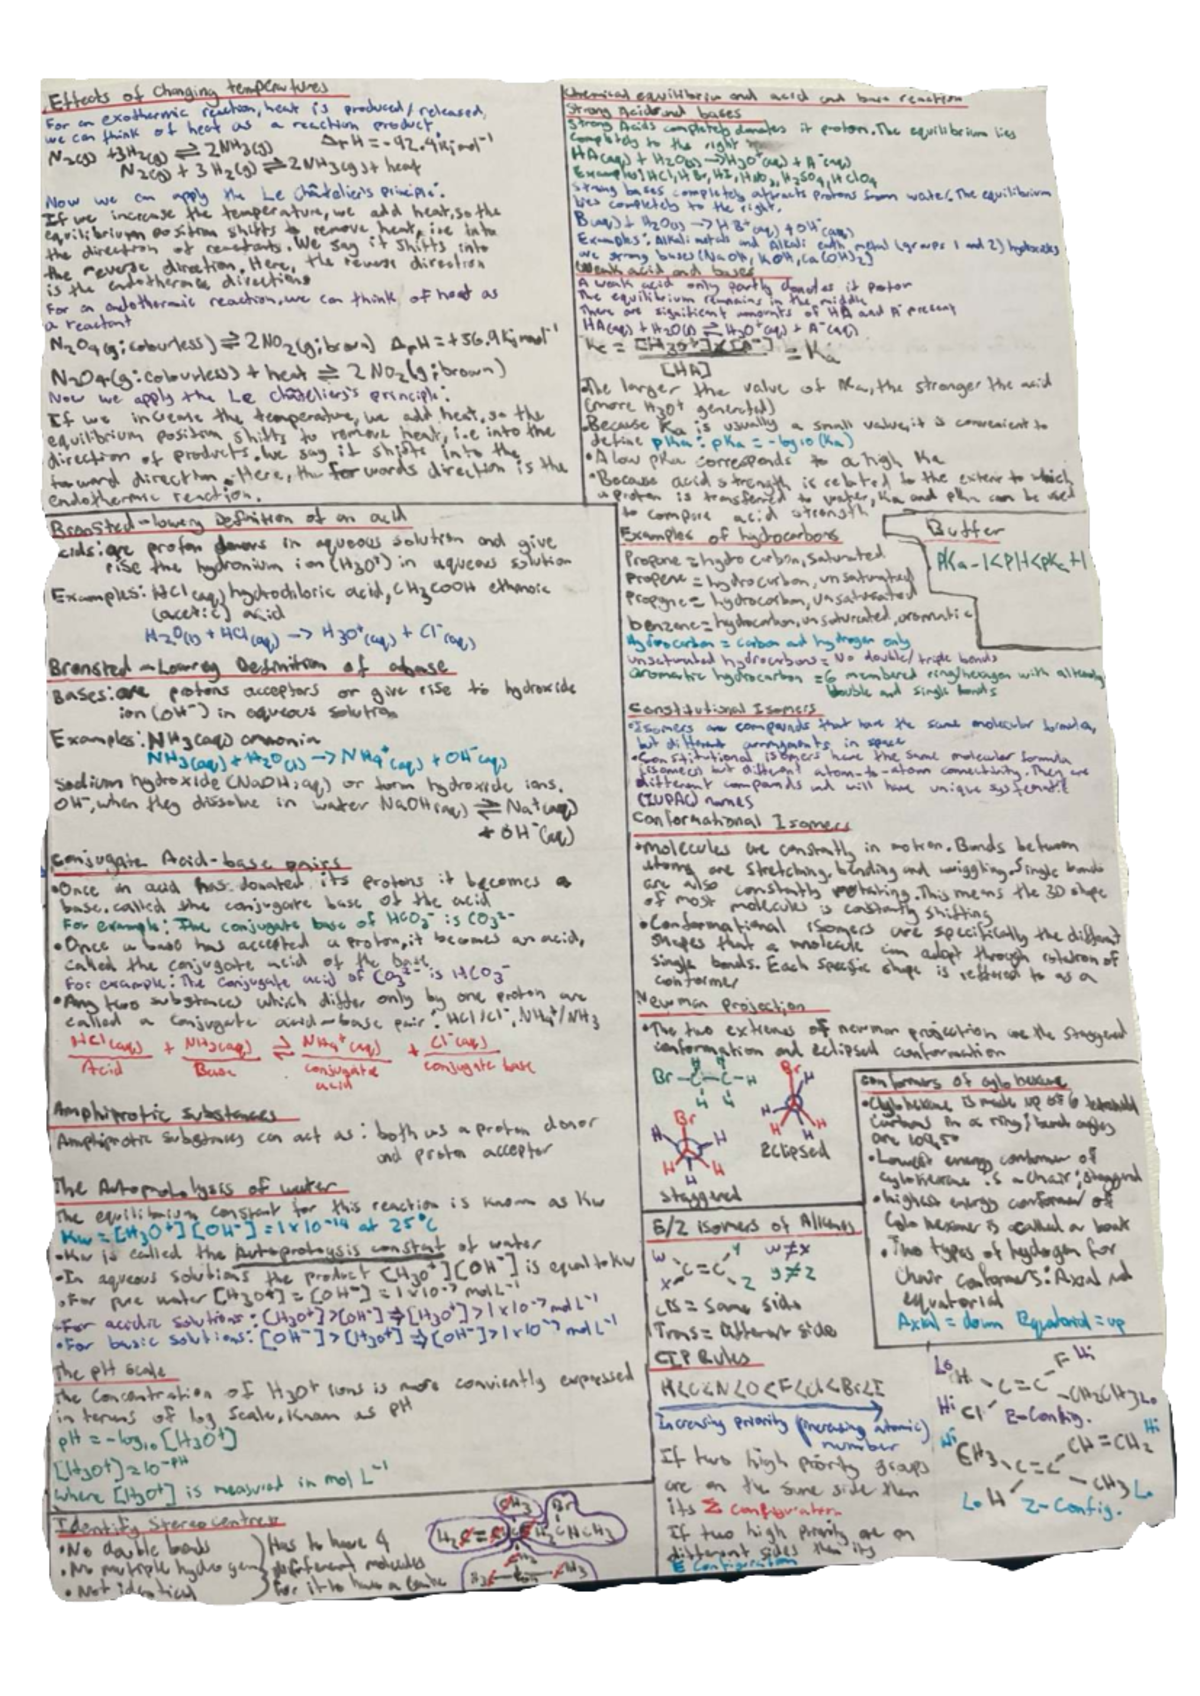 Effects of Changing temperatures
For an exothermic reaction, heat is produced/released,
we can think of heat as a reaction product
N₂(g) + 3H₂(g) ⇌ 2NH₃(g) ΔrH = -92.4kjmol⁻¹
N₂(g) + 3H₂(g) ⇌ 2NH₃(g) + heat
Now we can apply the Le Châtelier's principle:
If we increase the temperature, we add heat, so the
equilibrium position shifts to remove heat, i.e into
the direction of reactants. We say it shifts into
the reverse direction. Here, the reverse direction
is the endothermic directions
For an endothermic reaction, we can think of heat as
a reactant
N₂O₄(g; colourless) ⇌ 2NO₂(g; brown) ΔrH = +56.9Kjmol⁻¹
N₂O₄(g: colourless) + heat ⇌ 2NO₂(g; brown)
Now we apply the Le Châteliers's principle:
If we increase the temperature, we add heat, so the
equilibrium position shifts to remove heat, i.e into the
direction of products. We say it shifts into the
forward direction. Here, the forwards direction is the
endothermic reaction.
Bronsted-lowery Definition of an acid
cids: are proton donors in aqueous solution and give
rise the hydronium ion (H₃O⁺) in aqueous solution
Examples: HCl(aq) hydrochloric acid, CH₃COOH ethanoic
(acetic) acid
H₂O(l) + HCl(aq) → H₃O⁺(aq) + Cl⁻(aq)
Bronsted-Lowrey Definition of a base
Bases: are protons acceptors or give rise to hydroxide
ion (OH⁻) in aqueous solution
Examples: NH₃(aq) ammonia
NH₃(aq) + H₂O(l) → NH₄⁺(aq) + OH⁻(aq)
Sodium hydroxide (NaOH; aq) or form hydroxide ions.
OH⁻, when they dissolve in water NaOH(aq) ⇌ Na⁺(aq)
+ OH⁻(aq)
Conjugate Acid-base pairs
• Once an acid has donated its protons it becomes a
base, called the conjugate base of the acid
For example: The conjugate base of HCO₃⁻ is CO₃²⁻
• Once a base has accepted a proton, it becomes an acid,
called the conjugate acid of the base
For example: The conjugate acid of CO₃²⁻ is HCO₃⁻
• Any two substances which differ only by one proton are
called a conjugate acid-base pair: HCl/Cl⁻, NH₄⁺/NH₃
HCl(aq) + NH₃(aq) ⇌ NH₄⁺(aq) + Cl⁻(aq)
Acid Base conjugate acid conjugate base
Amphiprotic substances
Amphiprotic substances can act as: both as a proton donor
and proton acceptor
The Autoprotolysis of water
The equilibrium constant for this reaction is known as Kw
Kw = [H₃O⁺][OH⁻] = 1x10⁻¹⁴ at 25°C
• Kw is called the Autoprotolysis constant of water
• In aqueous solutions the product [H₃O⁺][OH⁻] is equal to Kw
• For pure water [H₃O⁺] = [OH⁻] = 1x10⁻⁷ mol L⁻¹
• For acidic solutions: [H₃O⁺] > [OH⁻] ⇒ [H₃O⁺] > 1x10⁻⁷ mol L⁻¹
• For basic solutions: [OH⁻] > [H₃O⁺] ⇒ [OH⁻] > 1x10⁻⁷ mol L⁻¹
The pH Scale
The Concentration of H₃O⁺ ions is more conviently expressed
in terms of log scale, known as pH
pH = -log₁₀ [H₃O⁺]
[H₃O⁺] = 10⁻ᵖᴴ
where [H₃O⁺] is measured in mol L⁻¹
Identify Stereocentres
• No double bonds
• No multiple hydrogen
• Not identical
Has to have 4
different molecules
for it to have a
Chemical equilibrium and acid and base reaction
Strong Acids and bases
Strong Acids completely donates it proton. The equilibrium lies
completely to the right
HA(aq) + H₂O(l) → H₃O⁺(aq) + A⁻(aq)
Examples] HCl, HBr, HI, HNO₃, H₂SO₄, HClO₄
Strong bases completely attracts protons from water. The equilibrium
lies completely to the right.
B(aq) + H₂O(l) → HB⁺(aq) + OH⁻(aq)
Examples: Alkali metals and Alkali earth metal (groups 1 and 2) hydroxides
are strong bases (NaOH, KOH, Ca(OH)₂)
Weak acid and bases
A weak acid only partly donates it proton
The equilibrium remains in the middle
There are significant amounts of HA and A⁻ present
HA(aq) + H₂O(l) ⇌ H₃O⁺(aq) + A⁻(aq)
Kc = [H₃O⁺]x[A⁻] = Ka
[HA]
• The larger the value of Ka, the stronger the acid
(more H₃O⁺ generated)
• Because Ka is usually a small value, it is convenient to
define pKa: pKa = -log10(Ka)
• A low pKa corresponds to a high Ka
• Because acid strength is related to the extent to which
a proton is transferred to water, Ka and pKa can be used
to compare acid strength
Buffer
pKa - 1 < pH < pKa + 1
Examples of hydrocarbons
Propane = hydrocarbon, saturated
Propene = hydrocarbon, unsaturated
Propyne = hydrocarbon, unsaturated
benzene = hydrocarbon, unsaturated, aromatic
Hydrocarbon = carbon and hydrogen only
unsaturated hydrocarbons = No double/triple bonds
aromatic hydrocarbon = 6 membered ring/hexagon with
double and single bonds
Constitutional Isomers
• Isomers are compounds that have the same molecular formula,
but different arrangements in space
• Constitutional isomers have the same molecular formula
(isomers) but different atom-to-atom connectivity. They are
different compounds and will have unique systematic
(IUPAC) names
Conformational Isomers
• Molecules are constantly in motion. Bonds between
atoms are stretching, bending and wiggling. Single bonds
are also constantly rotating. This means the 3D shape
of most molecules is constantly shifting
• Conformational isomers are specifically the different
shapes that a molecule can adopt through rotation of
single bonds. Each specific shape is reffered to as a
conformer
Newman Projection
• The two extremes of newman projection are the staggered
conformation and eclipsed conformation
H H
Br-C-C-H
H H
Br
H
H H
H H
Eclipsed
Br
H H
H H
H
Staggered
Conformers of cyclohexane
• Cyclohexane is made up of 6
carbons in a ring; bond angles
are 109.5°
• Lowest energy conformer of
cyclohexane is a chair; staggered
• highest energy conformer of
cyclohexane is called a boat
• Two types of hydrogen for
chair conformers: Axial and
equatorial
Axial = down Equatorial = up
E/Z isomers of Alkenes
W Y W≠X
C=C
X Z Y≠Z
Cis = Same side
Trans = Different side
CIP Rules
H<C<N<O<F<Cl<Br<I
Increasing priority (increasing atomic)
number
If two high priority groups
are on the same side then
its Z configuration
If two high priority are on
different sides then its
E Configuration
Lo H F Hi
C=C
Hi Cl CH₂CH₃ Lo
E-Config.
Hi CH₃ CH=CH₂ Hi
C=C
Lo H CH₃ Lo
Z-Config.